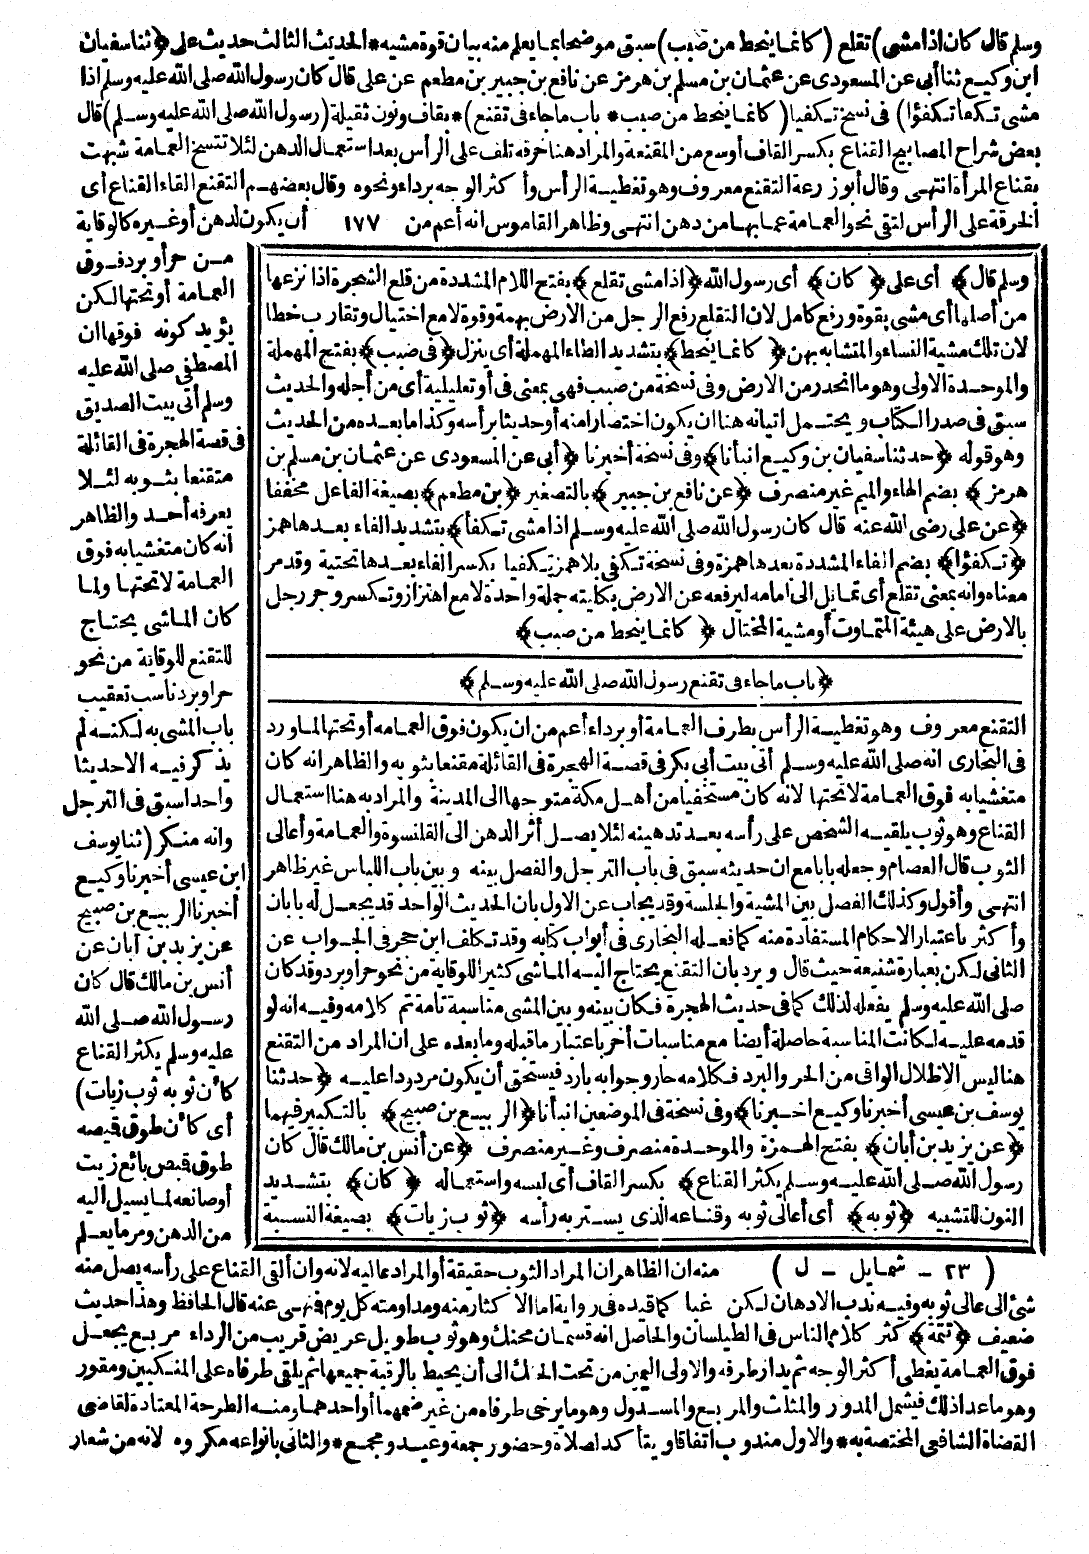 وسلم قال كان اذا مشى) تقلع (كأنما ينحط من صبب) سبق موضحا بما يعلم منه بيان قوة مشيه * الحديث الثالث حديث على (ثنا سفيان
ابن وكيع ثنا أبى عن المسعودى عن عثمان بن مسلم بن هرمز عن نافع بن جبير بن مطعم عن على قال كان رسول الله صلى الله عليه وسلم اذا
مشى تكفأ تكفؤا) فى نسخ تكفيا (كأنما ينحط من صبب * باب ماجاء فى تقنع) * بقاف ونون ثقيلة (رسول الله صلى الله عليه وسلم) قال
بعض شراح المصابيح القناع بكسر القاف أوسع من المقنعة والمراد هنا خرقه تلف على الرأس بعد استعمال الدهن لئلا تتسخ العمامة شبهت
بقناع المرأة انتهى وقال أبو زرعة التقنع معروف وهو تغطية الرأس وأكثر الوجه برداء ونحوه وقال بعضهم التقنع القاء القناع أى
الخرقة على الرأس لتقى نحو العمامة عما بها من دهن انتهى وظاهر القاموس انه أعم من ١٧٧ أن يكون لدهن أو غيره كالوقاية
من حر أو برد فوق
العمامة أو تحتها لكن
يؤيد كونه فوقها ان
المصطفى صلى الله عليه
وسلم أتى بيت الصديق
فى قصة الهجرة فى القائلة
متقنعا بثوبه لئلا
يعرفه أحد والظاهر
أنه كان متغشيا به فوق
العمامة لا تحتها ولما
كان الماشى يحتاج
للتقنع للوقاية من نحو
حر أو برد ناسب تعقيب
باب المشى به لكنه لم
يذكر فيه الا حديثا
واحدا سبق فى الترجل
وانه منكر (ثنا يوسف
ابن عيسى أخبرنا وكيع
أخبرنا الربيع بن صبيح
عن يزيد بن آبان عن
أنس بن مالك قال كان
رسول الله صلى الله
عليه وسلم يكثر القناع
كأن ثوبه ثوب زيات)
أى كأن طوق قيصه
طوق قبص بائع زيت
أو صانعه لما يسيل اليه
من الدهن ومر ما يعلم
وسلم قال﴾ أى على ﴿كان﴾ أى رسول الله ﴿اذا مشى تقلع﴾ بفتح اللام المشددة من قلع الشجرة اذا نزعها
من أصلها أى مشى بقوة ورفع كامل لان التقلع رفع الرجل من الارض بهمة وقوة لا مع اختيال وتقارب خطا
لان تلك مشية النساء والمتشابه بهن ﴿كأنما ينحط﴾ بتشديد الطاء المهملة أى ينزل ﴿فى صبب﴾ بفتح المهملة
والموحدة الاولى وهو ما انحدر من الارض وفى نسخة من صبب فهى بمعنى فى أو تعليلية أى من أجله والحديث
سبق فى صدر الكتاب ويحتمل اتيانه هنا ان يكون اختصارا منه أو حديثا برأسه وكذا ما بعده من الحديث
وهو قوله ﴿حدثنا سفيان بن وكيع انبأنا﴾ وفى نسخة أخبرنا ﴿أبى عن المسعودى عن عثمان بن مسلم بن
هرمز﴾ بضم الهاء والميم غير منصرف ﴿عن نافع بن جبير﴾ بالتصغير ﴿بن مطعم﴾ بصيغة الفاعل مخففا
﴿عن على رضى الله عنه قال كان رسول الله صلى الله عليه وسلم اذا مشى تكفأ﴾ بتشديد الفاء بعدها همز
﴿تكفؤا﴾ بضم الفاء المشددة بعدها همزة وفى نسخة تكفى بلا همز تكفيا بكسر الفاء بعدها تحتية وقد مر
معناه وانه بمعنى تقلع أى تمايل الى امامه ليرفعه عن الارض بكليته جملة واحدة لا مع اهتزاز وتكسر وجر رجل
بالارض على هيئة المتماوت أو مشية المختال ﴿كأنما ينحط من صبب﴾
﴿باب ماجاء فى تقنع رسول الله صلى الله عليه وسلم﴾
التقنع معروف وهو تغطية الرأس بطرف العمامة أو برداء أعم من ان يكون فوق العمامه أو تحتها لما ورد
فى البخارى انه صلى الله عليه وسلم أتى بيت أبى بكر فى قصة الهجرة فى القائلة مقنعا بثوبه والظاهر انه كان
متغشيا به فوق العمامة لا تحتها لانه كان مستخفيا من أهل مكة متوجها الى المدينة والمراد به هنا استعمال
القناع وهو ثوب يلقيه الشخص على رأسه بعد تدهينه لئلا يصل أثر الدهن الى القلنسوة والعمامة وأعالى
الثوب قال العصام وجعله بابا مع ان حديثه سبق فى باب الترجل والفصل بينه وبين باب اللباس غير ظاهر
انتهى وأقول وكذلك الفصل بين المشية والجلسة وقد يجاب عن الاول بان الحديث الواحد قد يجعل له بابان
وأكثر باعتبار الاحكام المستفادة منه كما فعله البخارى فى أبواب كتابه وقد تكلف ابن حجر فى الجواب عن
الثانى لكن بعبارة شنيعة حيث قال ويرد بان التقنع يحتاج اليه الماشى كثيرا للوقاية من نحو حر أو برد وقد كان
صلى الله عليه وسلم يفعله لذلك كما فى حديث الهجرة فكان بينه وبين المشى مناسبة تامة تم كلامه وفيه انه لو
قدمه عليه لكانت المناسبة حاصلة أيضا مع مناسبات أخر باعتبار ما قبله وما بعده على ان المراد من التقنع
هنا ليس الاظلال الواقى من الحر والبرد فكلامه حار وجوابه بارد فيستحق أن يكون مردودا عليه ﴿حدثنا
يوسف بن عيسى أخبرنا وكيع اخبرنا﴾ وفى نسخة فى الموضعين انبأنا ﴿الربيع بن صبيح﴾ بالتكبير فيهما
﴿عن يزيد بن أبان﴾ بفتح الهمزة والموحدة منصرف وغير منصرف ﴿عن أنس بن مالك قال كان
رسول الله صلى الله عليه وسلم يكثر القناع﴾ بكسر القاف أى لبسه واستعماله ﴿كان﴾ بتشديد
النون للتشبيه ﴿ثوبه﴾ أى أعالى ثوبه وقناعه الذى يستر به رأسه ﴿ثوب زيات﴾ بصيغة النسبة
(٢٣ - شمايل - ل) منه ان الظاهر ان المراد الثوب حقيقة أو المراد عاليه لانه وان ألقى القناع على رأسه يصل منه
شئ الى عالى ثوبه وفيه ندب الادهان لكن غبا كما قيده فى رواية اما الاكثار منه ومداومته كل يوم فنهى عنه قال الحافظ وهذا حديث
ضعيف ﴿تتمة﴾ كثر كلام الناس فى الطيلسان والحاصل انه قسمان محنك وهو ثوب طويل عريض قريب من الرداء مربع يجعل
فوق العمامة يغطى أكثر الوجه ثم يدار طرفه والاولى اليمين من تحت الحنك الى أن يحيط بالرقبة جميعها ثم يلقى طرفاه على المنكبين ومقور
وهو ما عدا ذلك فيشمل المدور والمثلث والمربع والمسدول وهو ما يرخى طرفاه من غير ضمهما أو احدهما ومنه الطرحة المعتادة لقاضى
القضاة الشافعى المختصة به * والاول مندوب اتفاقا ويتأكد لصلاة وحضور جمعة وعيد ومجمع * والثانى بانواعه مكروه لانه من شعار